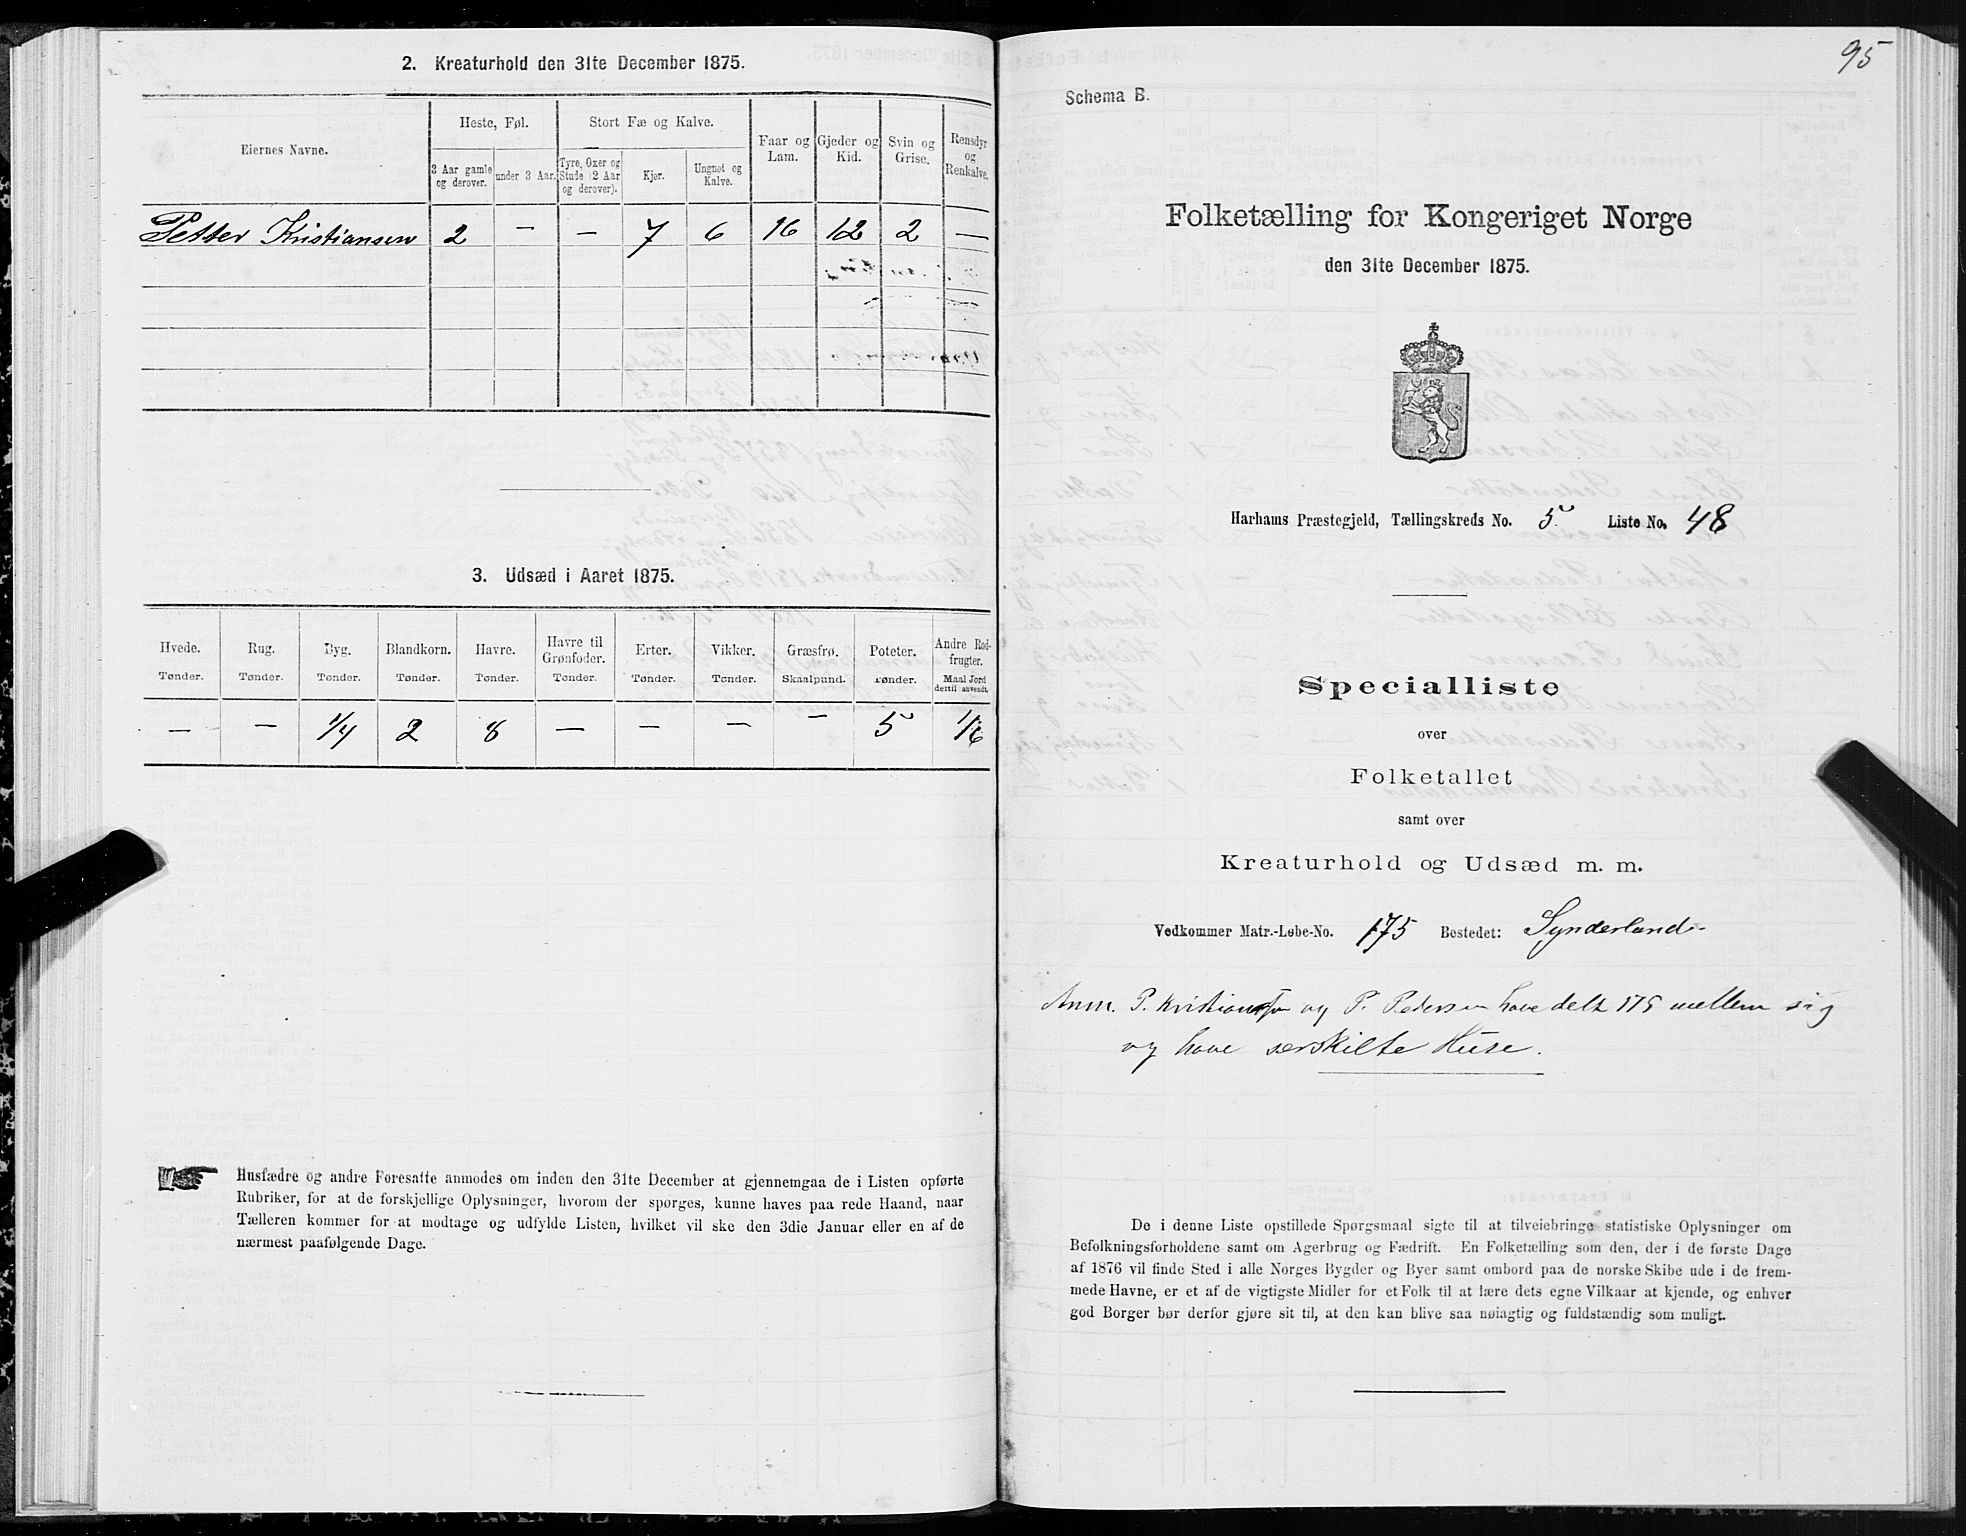 2. Kreaturhold den 31te December 1875.
Eiernes Navne.
Heste, Føl.
Stort Fæ og Kalve.
Faar og Lam.
Gjeder og Kid.
Svin og Grise.
Rensdyr og Renkalve.
3 Aar gamle og derover.
under 3 Aar.
Tyre, Oxer og Stude (2 Aar og derover).
Kjør.
Ungnøt og Kalve.
Petter Kristiansen 2 — — 7 6 16 12 2 —
3. Udsæd i Aaret 1875.
Hvede. Rug. Byg. Blandkorn. Havre. Havre til Grønfoder. Erter. Vikker. Græsfrø. Poteter. Andre Rodfrugter.
Tønder. Tønder. Tønder. Tønder. Tønder. Tønder. Tønder. Tønder. Skaalpund. Tønder. Maal Jord dertil anvendt.
— — 1/4 2 8 — — — — 5 1/6
Husfædre og andre Foresatte anmodes om inden den 31te December at gjennemgaa de i Listen opførte
Rubriker, for at de forskjellige Oplysninger, hvorom der spørges, kunne haves paa rede Haand, naar
Tælleren kommer for at modtage og udfylde Listen, hvilket vil ske den 3die Januar eller en af de
nærmest paafølgende Dage.
95
Schema B.
Folketælling for Kongeriget Norge
den 31te December 1875.
Harhams Præstegjeld, Tællingskreds No. 5. Liste No. 48
Specialliste
over
Folketallet
samt over
Kreaturhold og Udsæd m. m.
Vedkommer Matr.-Løbe-No. 175 Bostedet: Synderland
Anm. P. Kristiansen og P. Pedersen have delt 175 mellem sig
og have særskilte Huse.
De i denne Liste opstillede Spørgsmaal sigte til at tilveiebringe statistiske Oplysninger om
Befolkningsforholdene samt om Agerbrug og Fædrift. En Folketælling som den, der i de første Dage
af 1876 vil finde Sted i alle Norges Bygder og Byer samt ombord paa de norske Skibe ude i de frem-
mede Havne, er et af de vigtigste Midler for et Folk til at lære dets egne Vilkaar at kjende, og enhver
god Borger bør derfor gjøre sit til, at den kan blive saa nøiagtig og fuldstændig som muligt.